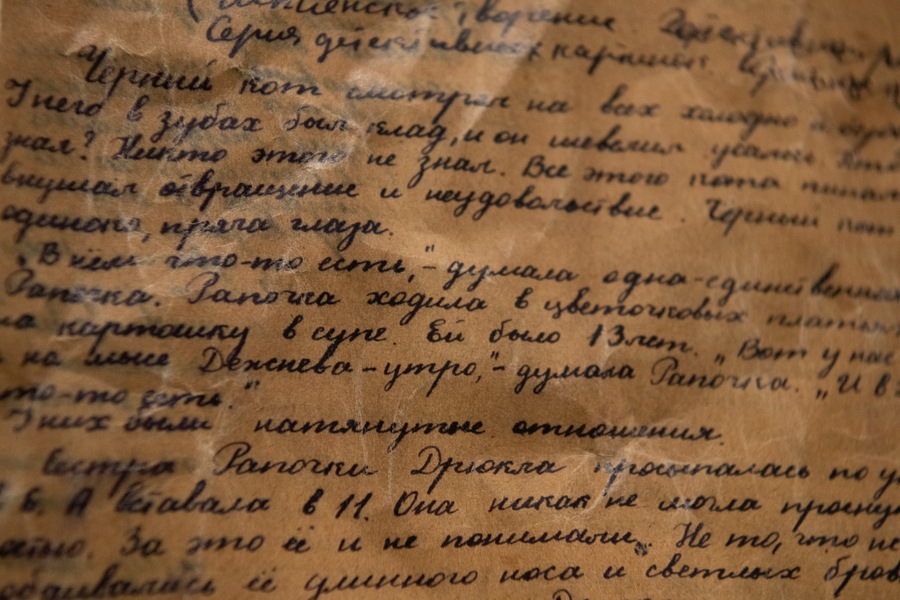 творение
Серия детективных картинок.
Черний кот смотрел на всех холодно и
У него в зубах был клад, и он шевелил усами.
знал? Никто этого не знал. Все этого кота
внушал отвращение и неудовольствие. Черный кот
одинока, пряча глаза.
„В нём что-то есть," - думала одна-единственная
Рапочка. Рапочка ходила в цветочковых платьях
ла картошку в супе. Ей было 13 лет. „Вот у нас
на мысе Дежнева - утро," - думала Рапочка. „И в
то-то есть."
У них были натянутые отношения.
Сестра Рапочки Дрюкла просыпалась по
в 6. А вставала в 11. Она никак не могла
За это её и не понимали. Не то, что
её длинного носа и светлых